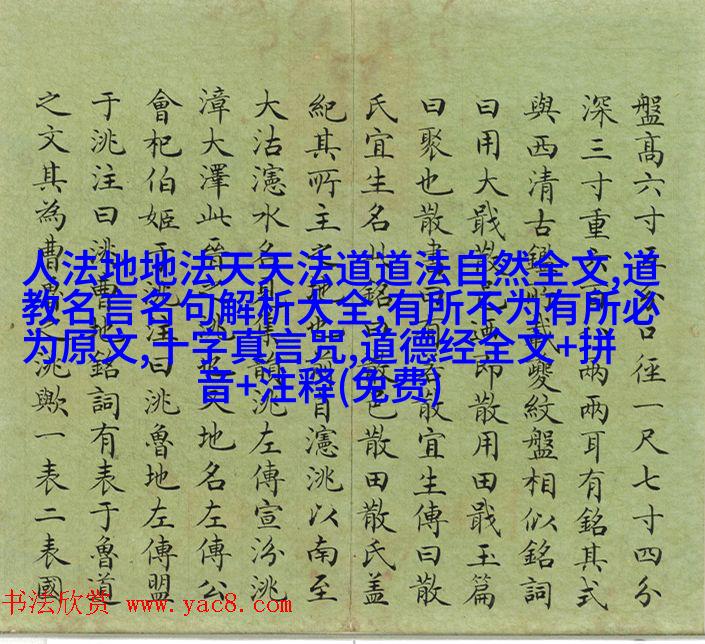 盤高六寸分口徑一尺七寸四分
深三寸重兩兩耳有銘其式
與西清古鑑所載夔紋盤相似銘詞
曰用大戢散即散用田戢玉篇
曰聚也散書曰散宜生傳曰散
氏宜生名此銘曰散邑散田散氏蓋
紀其所主之地也自瀗洮以南至
大沽瀗水名見集韻洮左傳宣汾洮
漳大澤此晉之洮也又地名左傳公
會杞伯姬于洮注曰洮魯地左傳盟
于洮注曰洮曹地銘詞有表于魯道
之文其為曹魯之洮歟一表二表國
人法地地法天天法道道法自然全文,道
教名言名句解析大全,有所不为有所必
为原文,十字真言咒,道德经全文+拼
音+注释(免费)
书法欣赏 www.yac8.com